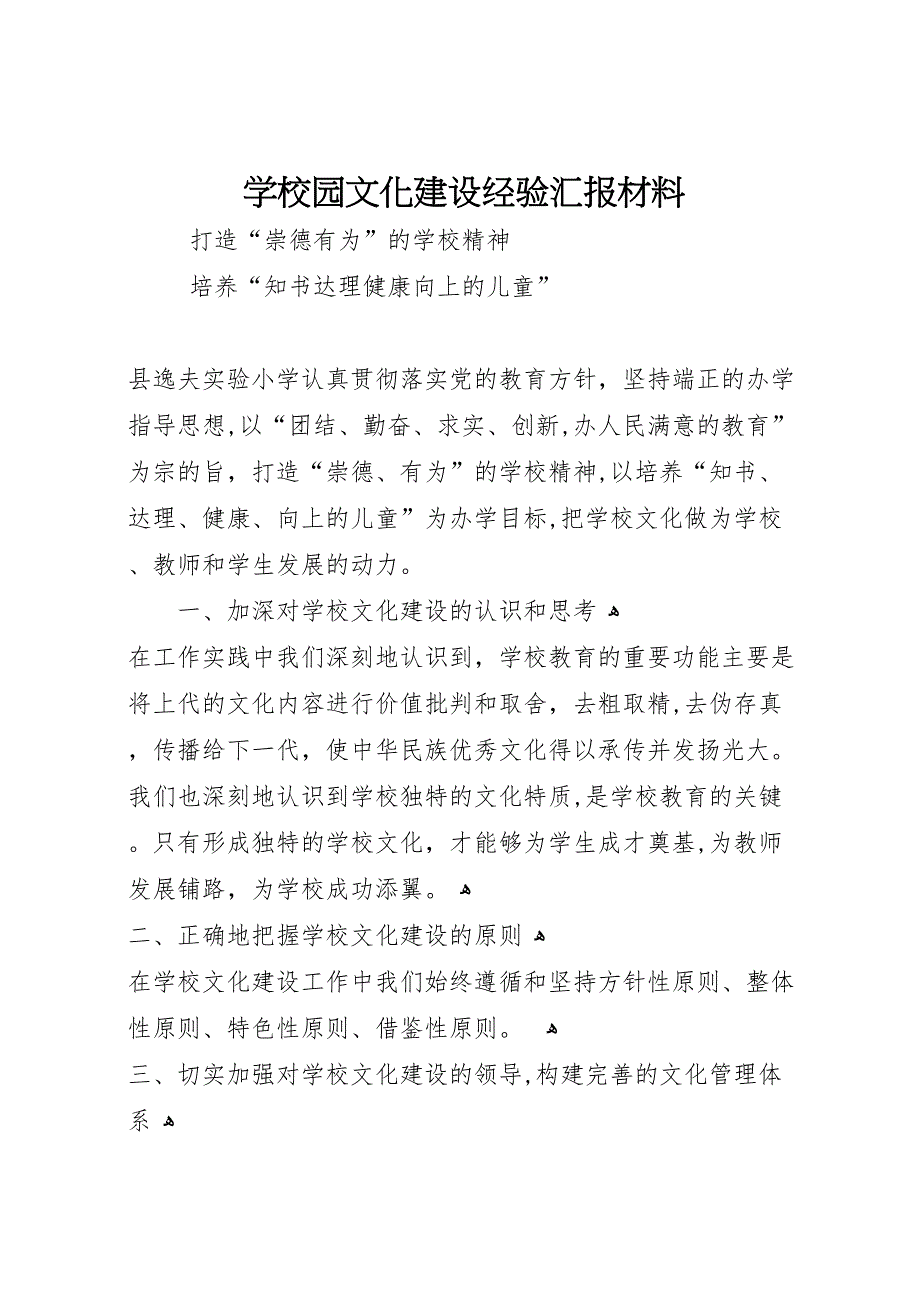 学校园文化建设经验汇报材料
打造“崇德有为”的学校精神
培养“知书达理健康向上的儿童”
县逸夫实验小学认真贯彻落实党的教育方针，坚持端正的办学
指导思想,以“团结、勤奋、求实、创新,办人民满意的教育”
为宗的旨，打造“崇德、有为”的学校精神,以培养“知书、
达理、健康、向上的儿童”为办学目标,把学校文化做为学校
、教师和学生发展的动力。
一、加深对学校文化建设的认识和思考 ﻬ
在工作实践中我们深刻地认识到，学校教育的重要功能主要是
将上代的文化内容进行价值批判和取舍，去粗取精,去伪存真
，传播给下一代，使中华民族优秀文化得以承传并发扬光大。
我们也深刻地认识到学校独特的文化特质,是学校教育的关键
。只有形成独特的学校文化，才能够为学生成才奠基,为教师
发展铺路，为学校成功添翼。 ﻬ
二、正确地把握学校文化建设的原则 ﻬ
在学校文化建设工作中我们始终遵循和坚持方针性原则、整体
性原则、特色性原则、借鉴性原则。 ﻬ
三、切实加强对学校文化建设的领导,构建完善的文化管理体
系 ﻬ